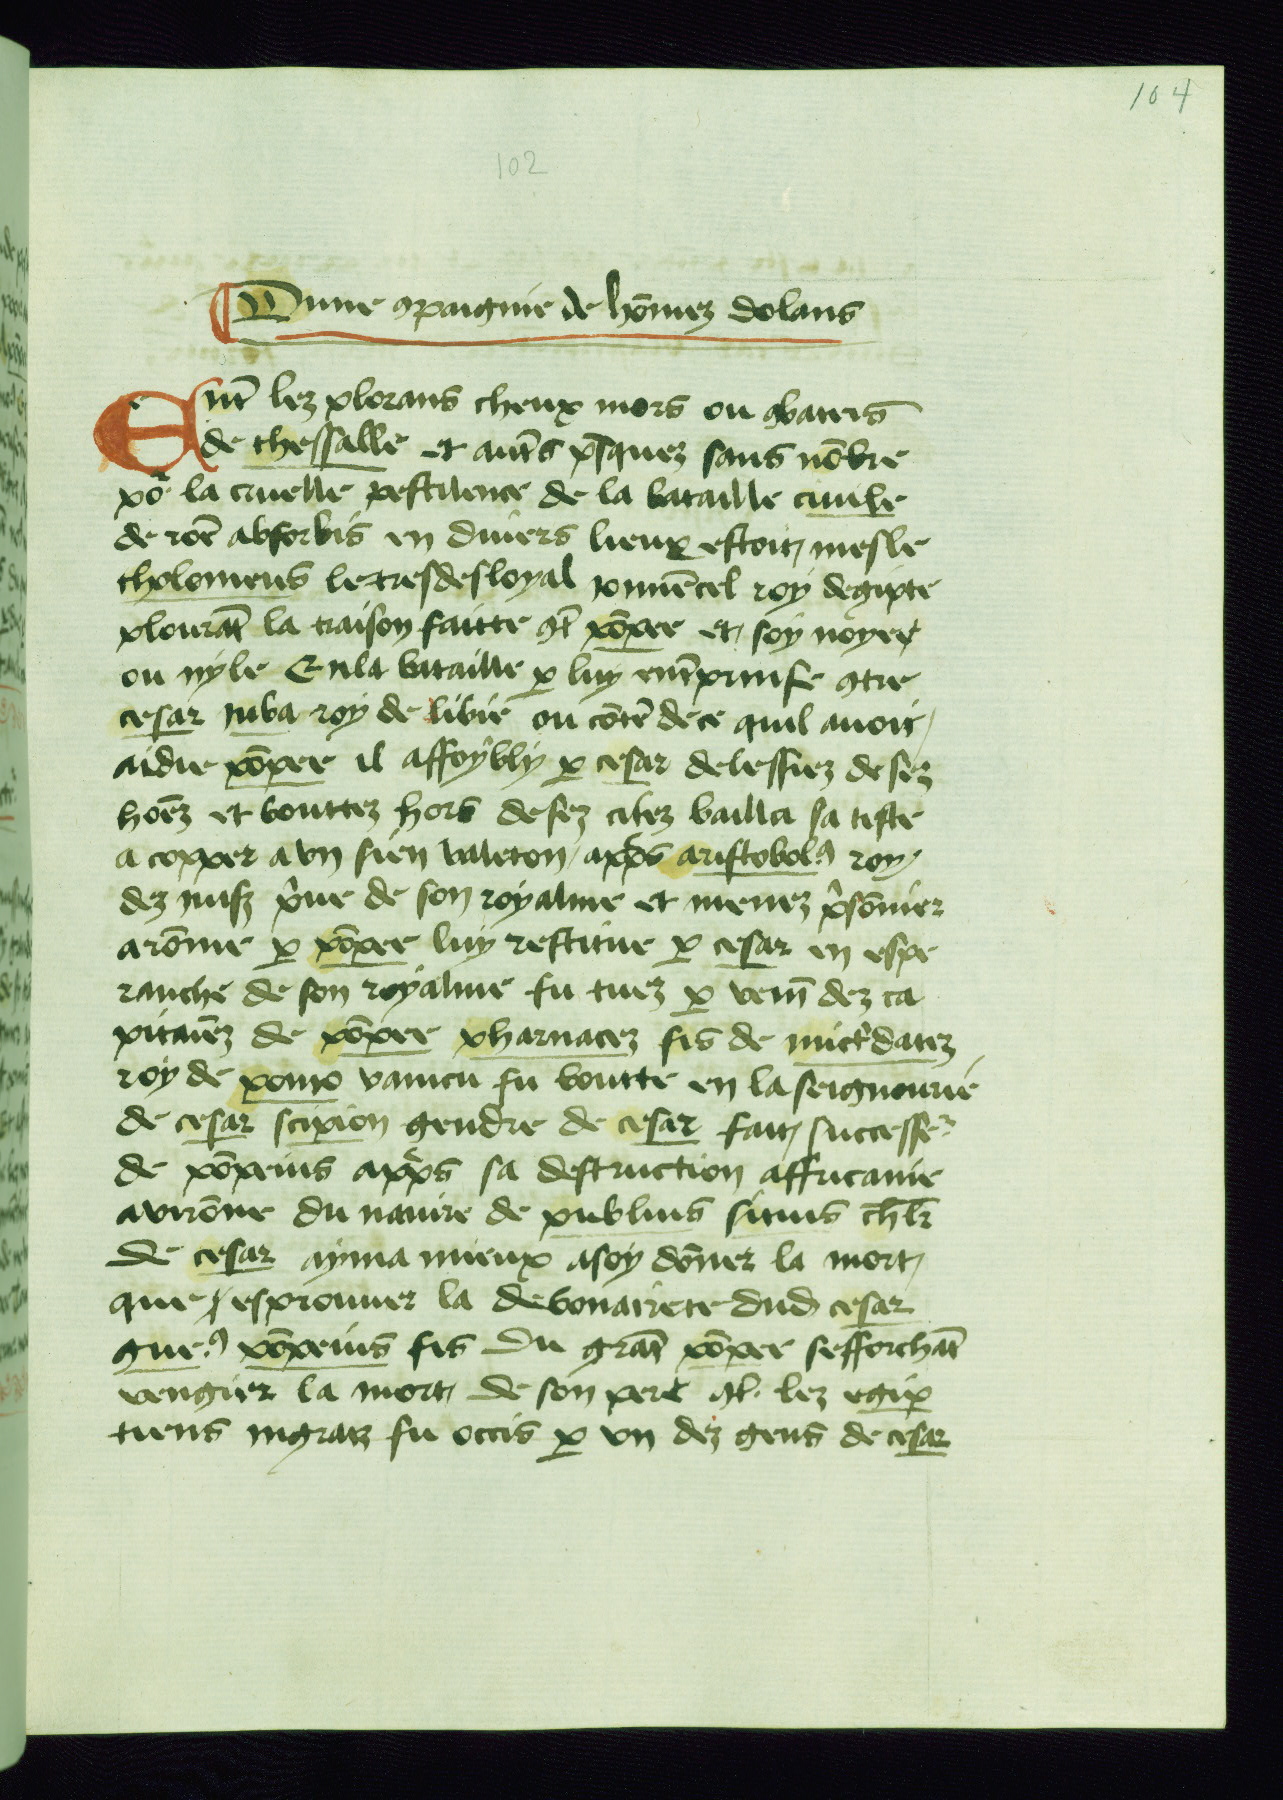 104
102
Dune ꝯpaignie de hōmez dolans
Entͥ lez plorans cheux mors ou ꝯbateis
de thessalle et autͥs pͥsquez sans nōbre
poͬ la cruelle pestilence de la bataille ciuile
de rōe absorbis en diuers lieux estoit mesle
tholomeus le tresdesloyal jouuēcel roy degipte
plourāt la traison faitte ꝯtͥ pōpee et soy noyer
ou nyle En la bataille ꝑ luy entͥprinse ꝯtre
cesar iuba roy de libie ou cōte de ce quil auoit
aidie pōpee il affoybly ꝑ cesar delessiez de sez
hōez et bouttez hors de sez citez bailla sa teste
a copper a vn sien valeton apͥs aristobolꝰ roy
dez iuifz pͥue de son royalme et menez pͥsōnier
a rōme ꝑ pōpee luy restitue ꝑ cesar en espe
ranche de son royalme fu tuez ꝑ veni dez ca
pitaiēz de pōpee pharnacez fis de mictͥdatez
roy de ponto vaincu fu boutte en la seignourie
de cesar scipion gendre de cesar fait successeͬ
de pōpeius apͥs sa destruction affricanie
auirōne du nauire de publius situs ch̅lr
de cesar ayma mieux a soy dōner la mort
que esprouuer la debonairete dud cesar
gneꝰ pōpeius fis du grāt pōpee sefforchāt
vengier la mort de son pere ꝯtͥ lez egip
tiens ingratz fu occis ꝑ vn dez gens de cesar